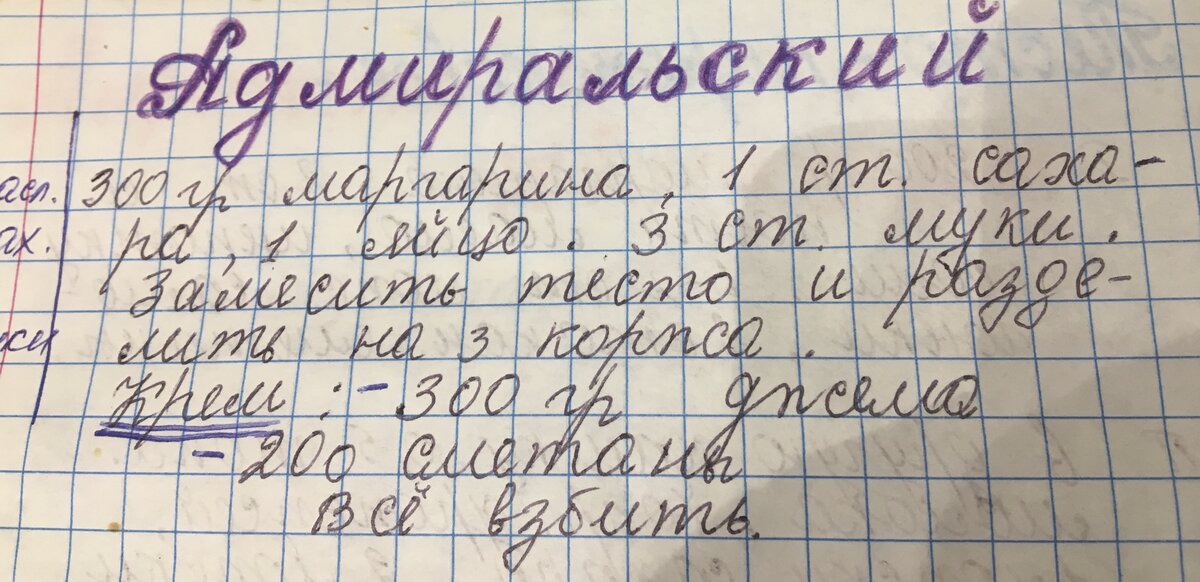 Адмиральский
300 гр маргарина, 1 ст. саха-
ра, 1 яйцо. 3 ст. муки.
Замесить тесто и разде-
лить на 3 коржа.
Крем: - 300 гр джема
- 200 сметаны
Всё взбить.